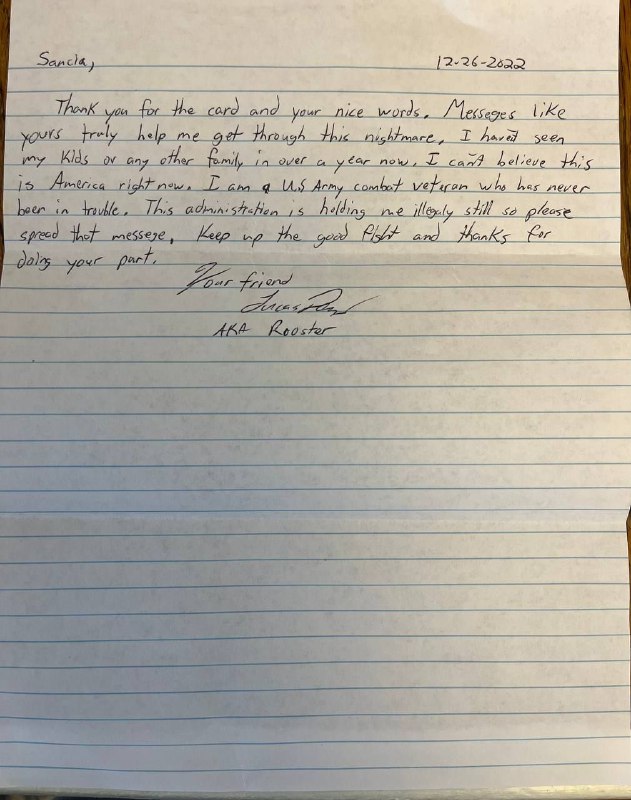 Sancia, 12-26-2022
Thank you for the card and your nice words. Messeges like
yours truly help me get through this nightmare. I haven't seen
my Kids or any other family in over a year now. I can't believe this
is America right now. I am a U.S Army combat veteran who has never
been in trouble. This administration is holding me illegaly still so please
spread that messege. Keep up the good fight and thanks for
doing your part.
Your friend
Lucas
AKA Rooster